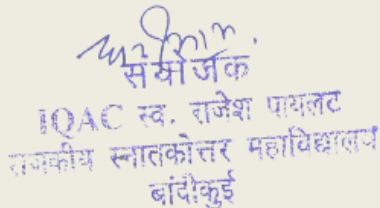 संयोजक
IQAC स्व. राजेश पायलट
राजकीय स्नातकोत्तर महाविद्यालय
बांदीकुई